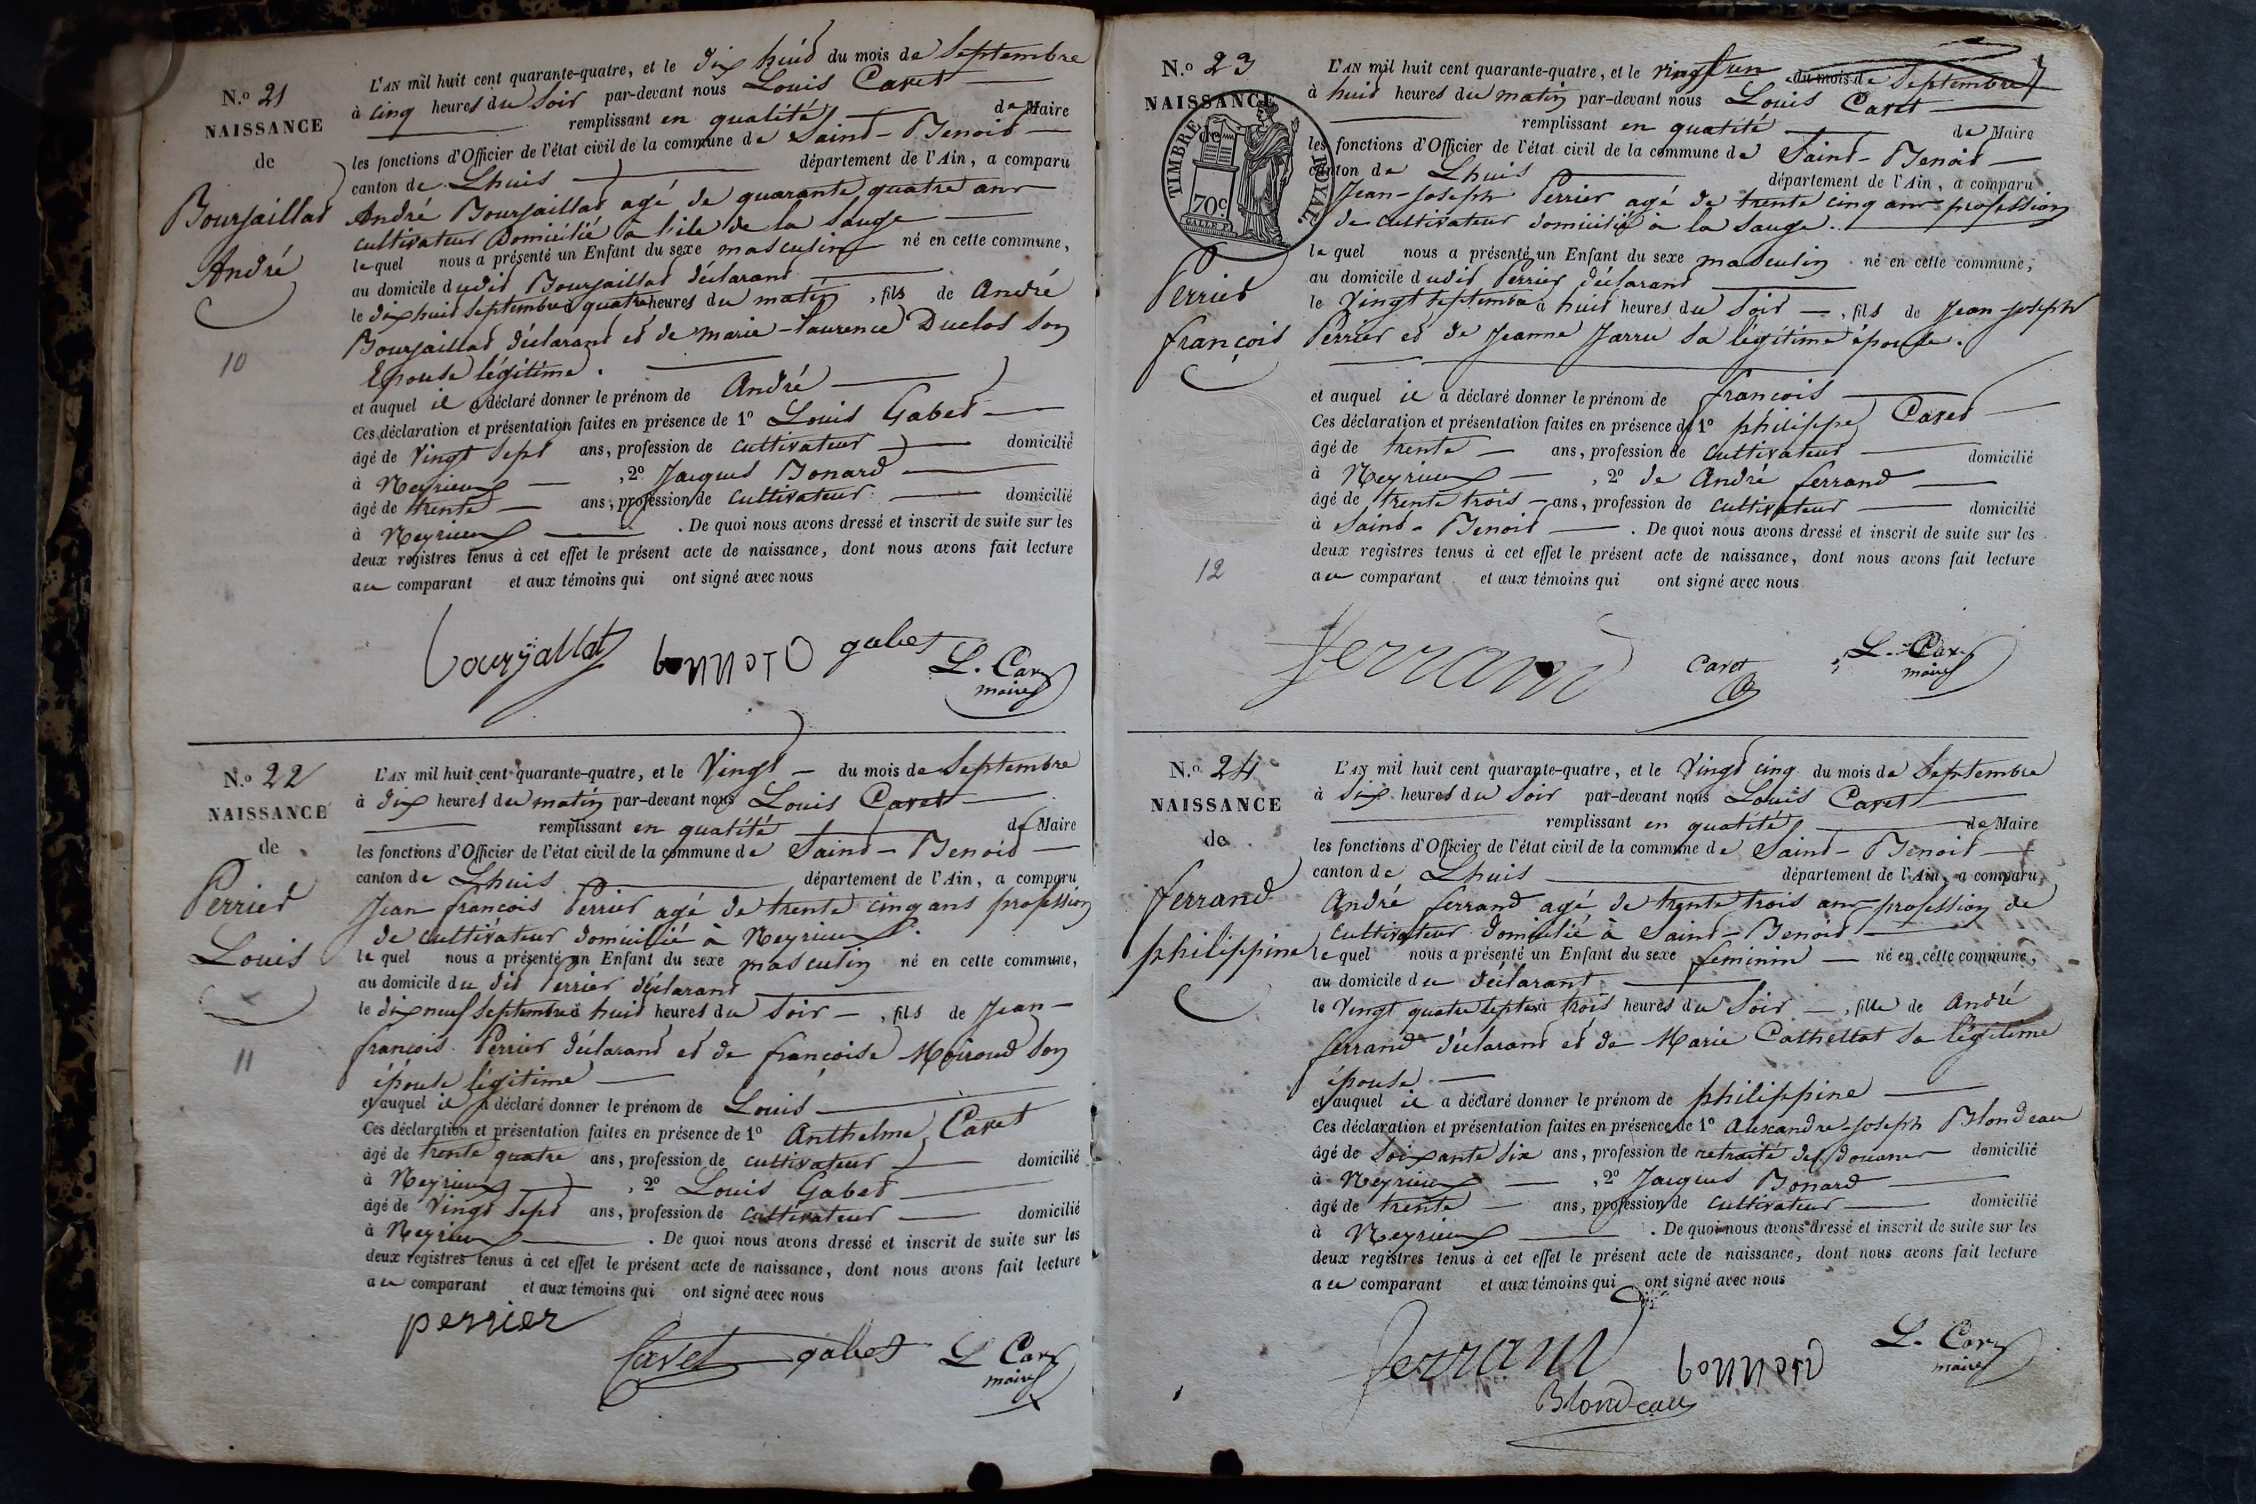 N.° 21
NAISSANCE
de
Bourjaillat
André
10
L'AN mil huit cent quarante-quatre, et le dix huit du mois de Septembre
à cinq heures du Soir par-devant nous Louis Caret
remplissant en qualité de Maire
les fonctions d'Officier de l'état civil de la commune de Saint-Benoit
canton de Lhuis département de l'Ain, a comparu
André Bourjaillat agé de quarante quatre ans
cultivateur Domicilié à l'ile de la Sauge
lequel nous a présenté un Enfant du sexe masculin né en cette commune,
au domicile dudit Bourjaillat déclarant
le dix huit Septembre à quatre heures du matin, fils de André
Bourjaillat déclarant et de marie-laurence Duclos Son
Epouse légitime.
et auquel il a déclaré donner le prénom de André
Ces déclaration et présentation faites en présence de 1° Louis Gabet
âgé de Vingt Sept ans, profession de cultivateur domicilié
à Neyrieux, 2° Jacques Bonard
âgé de trente ans, profession de cultivateur domicilié
à Neyrieux. De quoi nous avons dressé et inscrit de suite sur les
deux registres tenus à cet effet le présent acte de naissance, dont nous avons fait lecture
au comparant et aux témoins qui ont signé avec nous
bourjallat bonnard gabet L. Caret
maire
N.° 22
NAISSANCE
de
Perrier
Louis
11
L'AN mil huit cent quarante-quatre, et le Vingt du mois de Septembre
à dix heures du matin par-devant nous Louis Caret
remplissant en qualité de Maire
les fonctions d'Officier de l'état civil de la commune de Saint-Benoit
canton de Lhuis département de l'Ain, a comparu
Jean françois Perrier agé de trente cinq ans profession
de cultivateur domicilié à Neyrieux.
lequel nous a présenté un Enfant du sexe masculin né en cette commune,
au domicile du dit Perrier déclarant
le dix neuf Septembre à huit heures du Soir, fils de Jean-
françois Perrier déclarant et de françoise Moiroud Son
épouse légitime
et auquel il a déclaré donner le prénom de Louis
Ces déclaration et présentation faites en présence de 1° Anthelme Caret
âgé de trente quatre ans, profession de cultivateur domicilié
à Neyrieux, 2° Louis Gabet
âgé de Vingt Sept ans, profession de cultivateur domicilié
à Neyrieux. De quoi nous avons dressé et inscrit de suite sur les
deux registres tenus à cet effet le présent acte de naissance, dont nous avons fait lecture
au comparant et aux témoins qui ont signé avec nous
perrier
Caret gabet L Caret
maire
N.° 23
NAISSANCE
de
TIMBRE ROYAL
70c
Perrier
françois
12
L'AN mil huit cent quarante-quatre, et le vingt un du mois de Septembre
à huit heures du matin par-devant nous Louis Caret
remplissant en qualité de Maire
les fonctions d'Officier de l'état civil de la commune de Saint-Benoit
canton de Lhuis département de l'Ain, a comparu
Jean-Joseph Perrier agé de trente cinq ans profession
de cultivateur domicilié à la Sauge.
lequel nous a présenté un Enfant du sexe masculin né en cette commune,
au domicile dudit Perrier déclarant
le Vingt Septembre à huit heures du Soir, fils de Jean-Joseph
Perrier et de Jeanne Jarru Sa légitime épouse.
et auquel il a déclaré donner le prénom de françois
Ces déclaration et présentation faites en présence de 1° philippe Caret
âgé de trente ans, profession de cultivateur domicilié
à Neyrieux, 2° de André ferrand
âgé de trente trois ans, profession de cultivateur domicilié
à Saint-Benoit. De quoi nous avons dressé et inscrit de suite sur les
deux registres tenus à cet effet le présent acte de naissance, dont nous avons fait lecture
au comparant et aux témoins qui ont signé avec nous
ferrand caret L. Caret
maire
N.° 24
NAISSANCE
de
ferrand
philippine
L'AN mil huit cent quarante-quatre, et le Vingt cinq du mois de Septembre
à Six heures du Soir par-devant nous Louis Caret
remplissant en qualité de Maire
les fonctions d'Officier de l'état civil de la commune de Saint-Benoit
canton de Lhuis département de l'Ain, a comparu
André ferrand agé de trente trois ans profession de
cultivateur domicilié à Saint-Benoit
lequel nous a présenté un Enfant du sexe feminin né en cette commune,
au domicile du déclarant
le Vingt quatre Septe à trois heures du Soir, fille de André
ferrand déclarant et de Marie Cathellat Sa légitime
épouse.
et auquel il a déclaré donner le prénom de philippine
Ces déclaration et présentation faites en présence de 1° Alexandre-Joseph Blondeau
âgé de Soixante Six ans, profession de retraité des douanes domicilié
à Neyrieux, 2° Jacques Bonard
âgé de trente ans, profession de cultivateur domicilié
à Neyrieux. De quoi nous avons dressé et inscrit de suite sur les
deux registres tenus à cet effet le présent acte de naissance, dont nous avons fait lecture
au comparant et aux témoins qui ont signé avec nous
ferrand bonnard L. Caret
maire
Blondeau